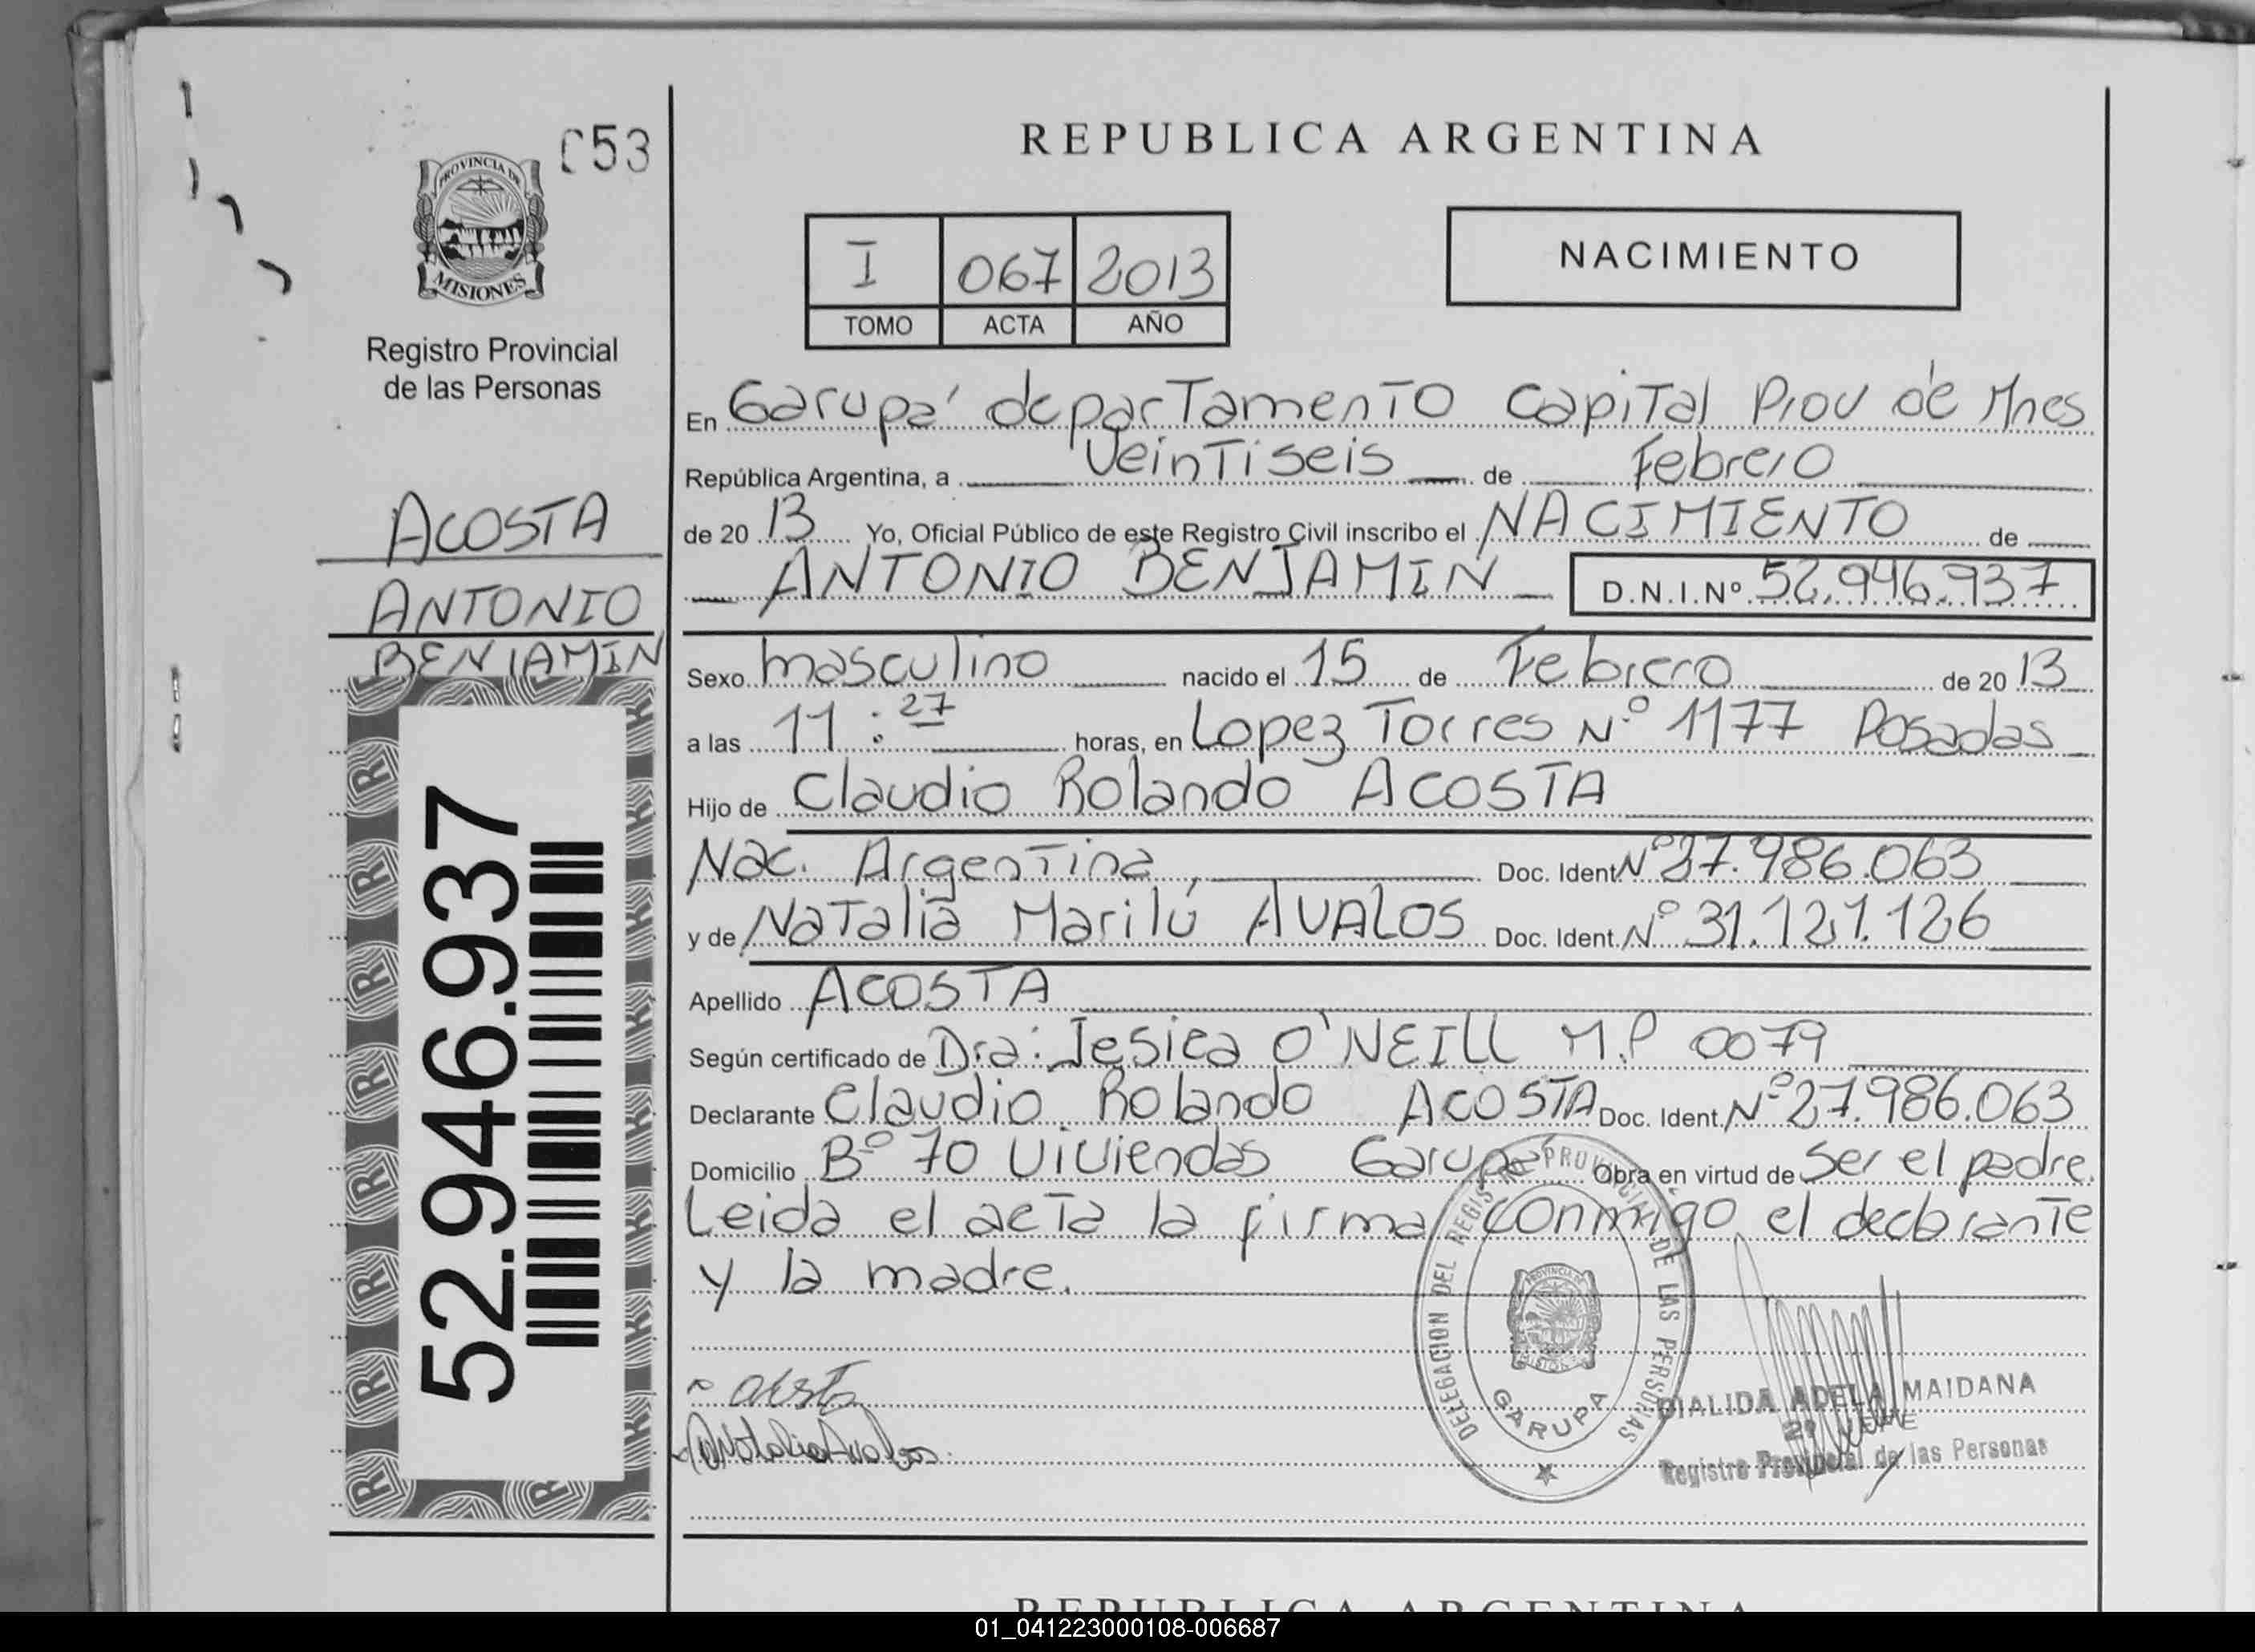 053
PROVINCIA DE
MISIONES
Registro Provincial
de las Personas
ACOSTA
ANTONIO
BENJAMIN
52.946.937
REPUBLICA ARGENTINA
I 067 2013
TOMO ACTA AÑO
NACIMIENTO
En Garupá departamento Capital Prov de Mnes
República Argentina, a Veintiseis de Febrero
de 20 13 Yo, Oficial Público de este Registro Civil inscribo el NACIMIENTO de
ANTONIO BENJAMIN D.N.I.Nº 52.946.937
Sexo masculino nacido el 15 de Febrero de 20 13
a las 11:27 horas, en Lopez Torres Nº 1177 Posadas
Hijo de Claudio Rolando ACOSTA
Nac. Argentina, Doc. Ident Nº 27.986.063
y de Natalia Marilú AVALOS Doc. Ident. Nº 31.121.126
Apellido ACOSTA
Según certificado de Dra: Jesica O'NEILL M.P 0079
Declarante Claudio Rolando ACOSTA Doc. Ident. Nº 27.986.063
Domicilio Bº 70 Viviendas Garupá Obra en virtud de Ser el padre.
Leida el acta la firma conmigo el declarante
y la madre.
DELEGACION DEL REGISTRO PROVINCIAL DE LAS PERSONAS
GARUPA
Natalia Avalos
DIALIDA ADELA MAIDANA
Registro Provincial de las Personas
REPUBLICA ARGENTINA
01_041223000108-006687